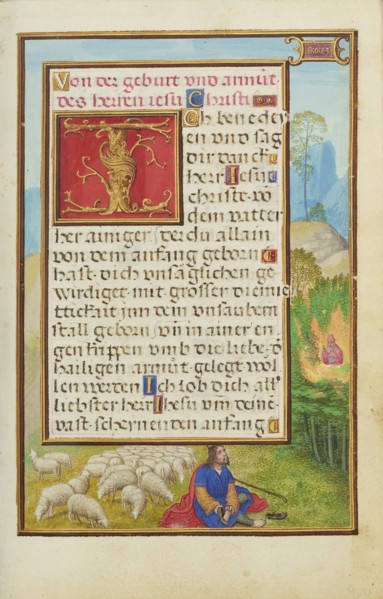 Von der geburt vnd armůt
des herren iesu Christi
Ich benedey
en vnd sag
dir danck
herr Iesu
christe vō
dem vatter
her ainiger der du allain
von dem anfang geborn
hast dich vnsäglichen ge
wirdiget mit grosser diemie
ttickait jnn dem vnsaubern
stall geborn vn̄ in ainer en
gen krippen vmb die liebe d͛
hailigen armůt gelegt wol
len werden Ich lob dich all͛
liebster herr Ihesu vm̄ deinē
vast scheinenden anfang